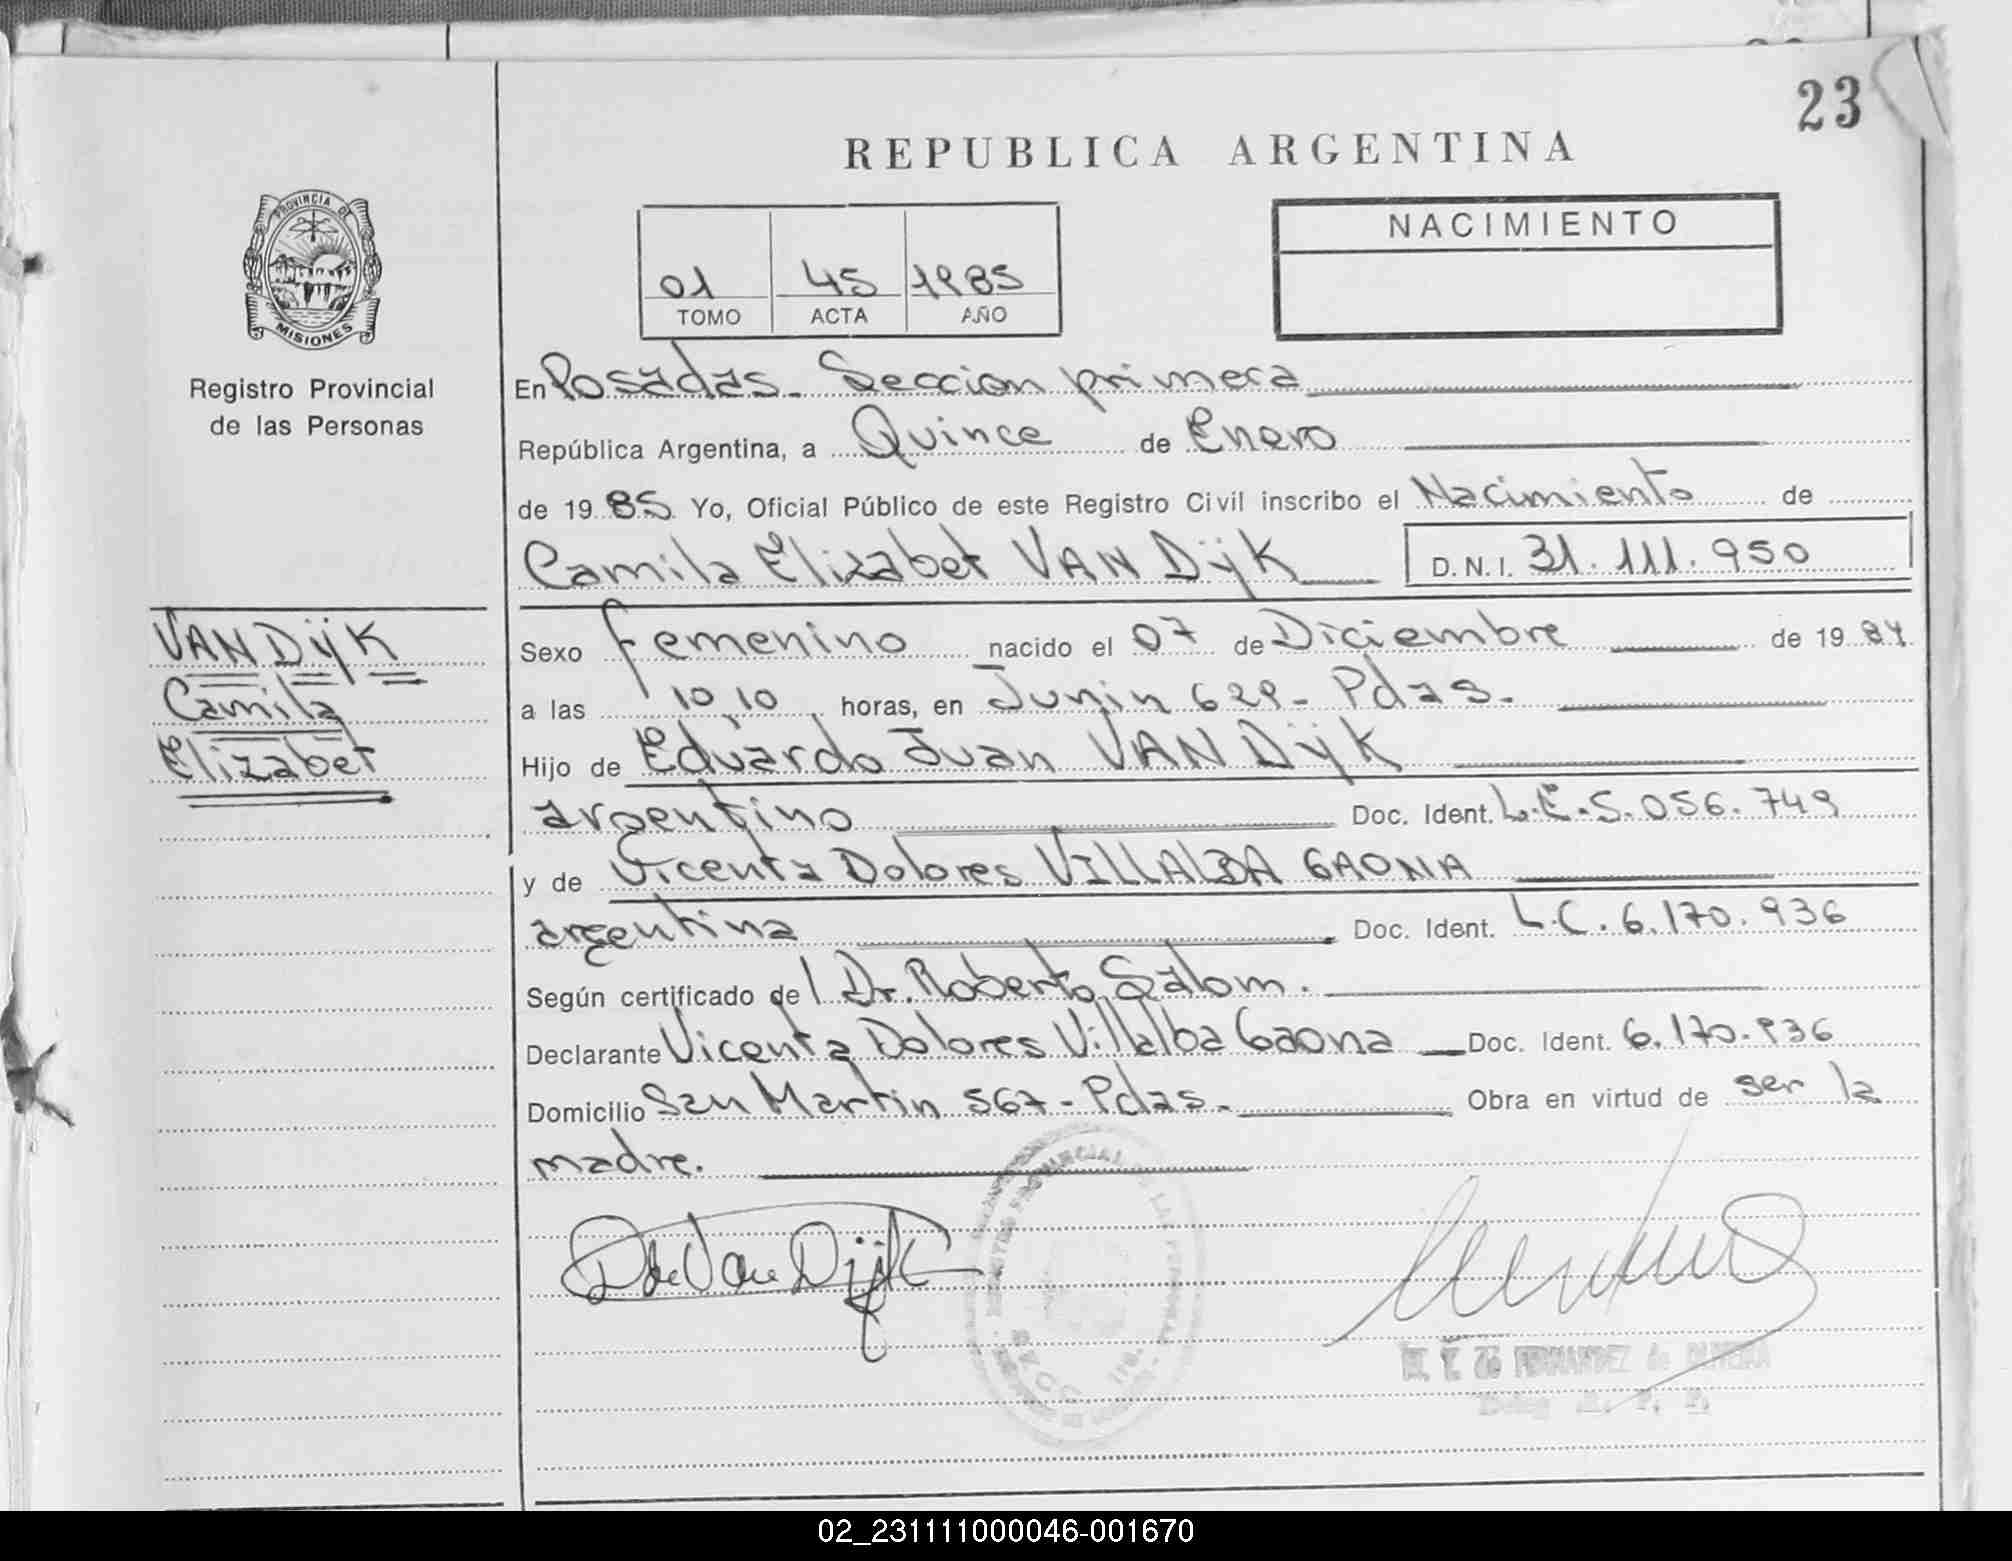 23
REPUBLICA ARGENTINA
PROVINCIA DE
MISIONES
Registro Provincial
de las Personas
01 45 1985
TOMO ACTA AÑO
NACIMIENTO
En Posadas - Seccion primera
República Argentina, a Quince de Enero
de 1985 Yo, Oficial Público de este Registro Civil inscribo el Nacimiento de
Camila Elizabet VAN Dijk D.N.I. 31.111.950
VAN Dijk
Camila
Elizabet
Sexo femenino nacido el 07 de Diciembre de 1984
a las 10,10 horas, en Junin 629 - Pdas.
Hijo de Eduardo Juan VAN Dijk
argentino Doc. Ident. L.E. 5.056.749
y de Vicenta Dolores VILLALBA GAONA
argentina Doc. Ident. L.C. 6.170.936
Según certificado de l Dr. Roberto Salom.
Declarante Vicenta Dolores Villalba Gaona Doc. Ident. 6.170.936
Domicilio San Martin 567 - Pdas. Obra en virtud de ser la
madre.
de Van Dijk
FERNANDEZ de OLIVERA
02_231111000046-001670